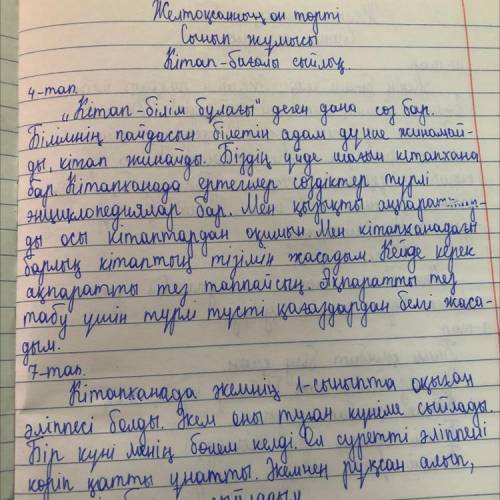 Желтоқсанның он төрті
Сынып жұмысы
Кітап-бағалы сыйлық.
4-тап.
„Кітап-білім бұлағы" деген дана сөз бар.
Білімнің пайдасын білетін адам дүние жинамай-
ды, кітап жинайды. Біздің үйде шағын кітапхана
бар. Кітапханада ертегілер сөздіктер түрлі
энциклопедиялар бар. Мен қызықты
ды осы кітаптардан оқимын. Мен кітапханадағы
барлық кітаптың тізімін жасадым. Кейде керек
ақпаратты тез таппайсың. Ақпаратты тез
табу үшін түрлі түсті қағаздардан белгі жаса-
дым.
7-тап.
Кітапханада әкемнің 1-сыныпта оқыған
әліппесі болды. Әкем оны туған күніме сыйлады.
Бір күні менің бөлем келді. Ол суретті әліппені
көріп қатты ұнатты. Әкемнен рұқсат алып,